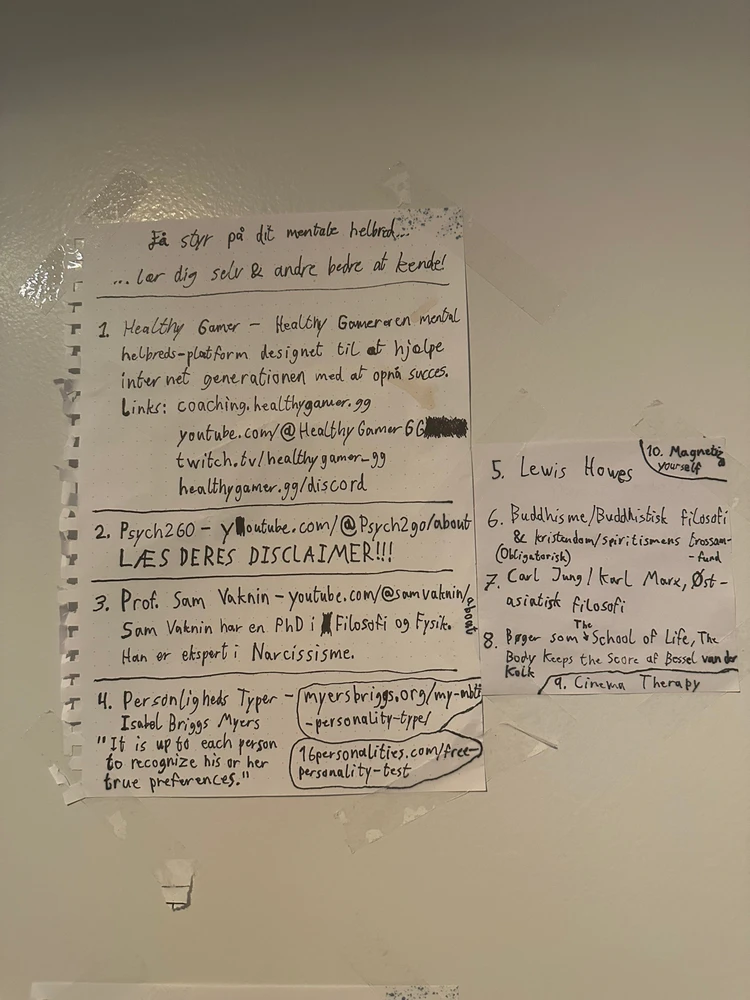 Få styr på dit mentale helbred...
... lær dig selv & andre bedre at kende!
1. Healthy Gamer – Healthy Gamer er en mental
helbreds-platform designet til at hjælpe
internet generationen med at opnå succes.
Links: coaching.healthygamer.gg
youtube.com/@HealthyGamerGG
twitch.tv/healthygamer_gg
healthygamer.gg/discord
2. Psych2GO – youtube.com/@Psych2go/about
LÆS DERES DISCLAIMER!!!
3. Prof. Sam Vaknin – youtube.com/@samvaknin/about
Sam Vaknin har en PhD i Filosofi og Fysik.
Han er ekspert i Narcissisme.
4. Personligheds Typer – myersbriggs.org/my-mbti
-personality-type/
Isabel Briggs Myers
"It is up to each person
to recognize his or her
true preferences."
16personalities.com/free-
personality-test
5. Lewis Howes
10. Magnetize
yourself
6. Buddhisme/Buddhistisk filosofi
& kristendom/spiritismens trossam-
(Obligatorisk) -fund
7. Carl Jung/Karl Marx, Øst-
asiatisk filosofi
8. Bøger som The School of Life, The
Body Keeps the Score af Bessel van der
Kolk
9. Cinema Therapy